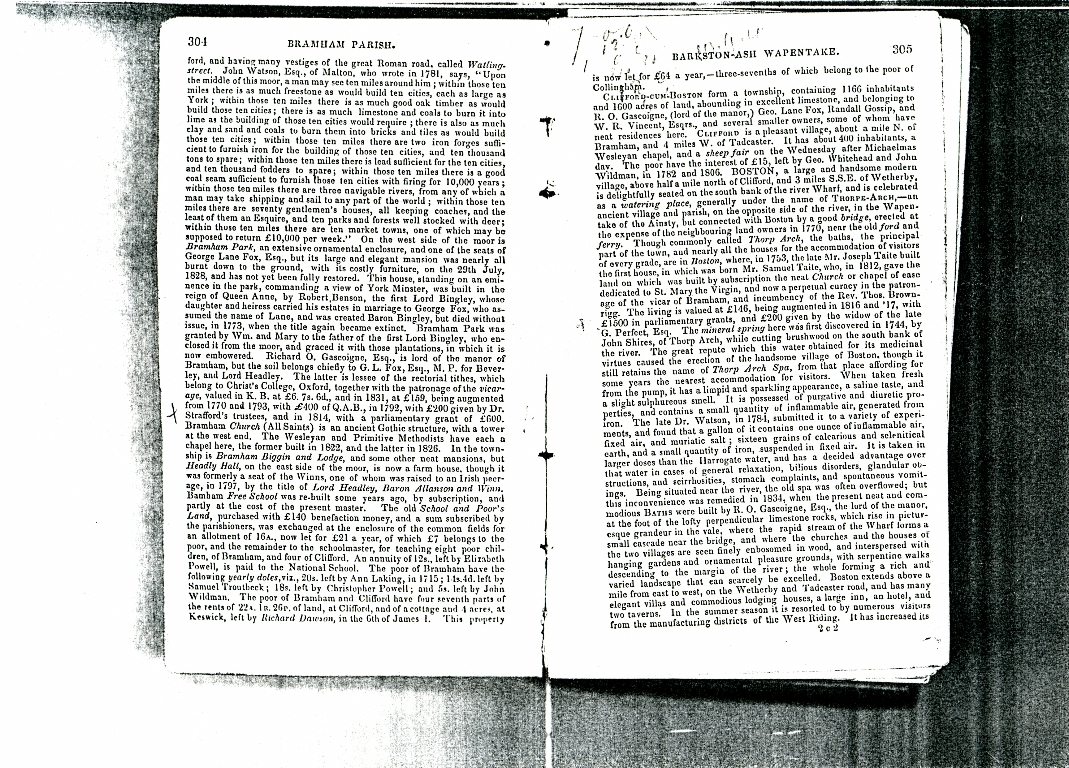 304
BRAMHAM PARISH.
ford, and having many vestiges of the great Roman road, called Watling-
street. John Watson, Esq., of Malton, who wrote in 1781, says, "Upon
the middle of this moor, a man may see ten miles around him; within those ten
miles there is as much freestone as would build ten cities, each as large as
York; within those ten miles there is as much good oak timber as would
build those ten cities; there is as much limestone and coals to burn it into
lime as the building of those ten cities would require; there is also as much
clay and sand and coals to burn them into bricks and tiles as would build
those ten cities; within those ten miles there are two iron forges suffi-
cient to furnish iron for the building of those ten cities, and ten thousand
tons to spare; within those ten miles there is lead sufficient for the ten cities,
and ten thousand fodders to spare; within those ten miles there is a good
coal seam sufficient to furnish those ten cities with firing for 10,000 years;
within those ten miles there are three navigable rivers, from any of which a
man may take shipping and sail to any part of the world; within those ten
miles there are seventy gentlemen's houses, all keeping coaches, and the
least of them an Esquire, and ten parks and forests well stocked with deer;
within those ten miles there are ten market towns, one of which may be
supposed to return £10,000 per week." On the west side of the moor is
Bramham Park, an extensive ornamental enclosure, and one of the seats of
George Lane Fox, Esq., but its large and elegant mansion was nearly all
burnt down to the ground, with its costly furniture, on the 29th July,
1828, and has not yet been fully restored. This house, standing on an emi-
nence in the park, commanding a view of York Minster, was built in the
reign of Queen Anne, by Robert Benson, the first Lord Bingley, whose
daughter and heiress carried his estates in marriage to George Fox, who as-
sumed the name of Lane, and was created Baron Bingley, but died without
issue, in 1773, when the title again became extinct. Bramham Park was
granted by Wm. and Mary to the father of the first Lord Bingley, who en-
closed it from the moor, and graced it with those plantations, in which it is
now embowered. Richard O. Gascoigne, Esq., is lord of the manor of
Bramham, but the soil belongs chiefly to G. L. Fox, Esq., M. P. for Bever-
ley, and Lord Headley. The latter is lessee of the rectorial tithes, which
belong to Christ's College, Oxford, together with the patronage of the vicar-
age, valued in K. B. at £6. 7s. 6d., and in 1831, at £159, being augmented
from 1770 and 1793, with £400 of Q.A.B., in 1792, with £200 given by Dr.
Strafford's trustees, and in 1814, with a parliamentary grant of £600.
Bramham Church (All Saints) is an ancient Gothic structure, with a tower
at the west end. The Wesleyan and Primitive Methodists have each a
chapel here, the former built in 1822, and the latter in 1826. In the town-
ship is Bramham Biggin and Lodge, and some other neat mansions, but
Headly Hall, on the east side of the moor, is now a farm house, though it
was formerly a seat of the Winns, one of whom was raised to an Irish peer-
age, in 1797, by the title of Lord Headley, Baron Allanson and Winn.
Bamham Free School was re-built some years ago, by subscription, and
partly at the cost of the present master. The old School and Poor's
Land, purchased with £140 benefaction money, and a sum subscribed by
the parishioners, was exchanged at the enclosure of the common fields for
an allotment of 16A., now let for £21 a year, of which £7 belongs to the
poor, and the remainder to the schoolmaster, for teaching eight poor chil-
dren, of Bramham, and four of Clifford. An annuity of 12s., left by Elizabeth
Powell, is paid to the National School. The poor of Bramham have the
following yearly doles, viz., 20s. left by Ann Laking, in 1715; 14s.4d. left by
Samuel Troutbeck; 18s. left by Christopher Powell; and 5s. left by John
Wildman. The poor of Bramham and Clifford have four seventh parts of
the rents of 22A. 1R. 26P. of land, at Clifford, and of a cottage and 4 acres, at
Keswick, left by Richard Dawson, in the 6th of James I. This property
BARKSTON-ASH WAPENTAKE.
305
is now let for £64 a year,—three-sevenths of which belong to the poor of
Collingham.
CLIFFORD-CUM-BOSTON form a township, containing 1166 inhabitants
and 1600 acres of land, abounding in excellent limestone, and belonging to
R. O. Gascoigne, (lord of the manor,) Geo. Lane Fox, Randall Gossip, and
W. R. Vincent, Esqrs., and several smaller owners, some of whom have
neat residences here. CLIFFORD is a pleasant village, about a mile N. of
Bramham, and 4 miles W. of Tadcaster. It has about 400 inhabitants, a
Wesleyan chapel, and a sheep fair on the Wednesday after Michaelmas
day. The poor have the interest of £15, left by Geo. Whitehead and John
Wildman, in 1782 and 1806. BOSTON, a large and handsome modern
village, above half a mile north of Clifford, and 3 miles S.S.E. of Wetherby,
is delightfully seated on the south bank of the river Wharf, and is celebrated
as a watering place, generally under the name of THORPE-ARCH,—an
ancient village and parish, on the opposite side of the river, in the Wapen-
take of the Ainsty, but connected with Boston by a good bridge, erected at
the expense of the neighbouring land owners in 1770, near the old ford and
ferry. Though commonly called Thorp Arch, the baths, the principal
part of the town, and nearly all the houses for the accommodation of visitors
of every grade, are in Boston, where, in 1753, the late Mr. Joseph Taite built
the first house, in which was born Mr. Samuel Taite, who, in 1812, gave the
land on which was built by subscription the neat Church or chapel of ease
dedicated to St. Mary the Virgin, and now a perpetual curacy in the patron-
age of the vicar of Bramham, and incumbency of the Rev. Thos. Brown-
rigg. The living is valued at £146, being augmented in 1816 and '17, with
£1500 in parliamentary grants, and £200 given by the widow of the late
G. Perfect, Esq. The mineral spring here was first discovered in 1744, by
John Shires, of Thorp Arch, while cutting brushwood on the south bank of
the river. The great repute which this water obtained for its medicinal
virtues caused the erection of the handsome village of Boston, though it
still retains the name of Thorp Arch Spa, from that place affording for
some years the nearest accommodation for visitors. When taken fresh
from the pump, it has a limpid and sparkling appearance, a saline taste, and
a slight sulphureous smell. It is possessed of purgative and diuretic pro-
perties, and contains a small quantity of inflammable air, generated from
iron. The late Dr. Watson, in 1784, submitted it to a variety of experi-
ments, and found that a gallon of it contains one ounce of inflammable air,
fixed air, and muriatic salt; sixteen grains of calcarious and selenitical
earth, and a small quantity of iron, suspended in fixed air. It is taken in
larger doses than the Harrogate water, and has a decided advantage over
that water in cases of general relaxation, bilious disorders, glandular ob-
structions, and scirrhosities, stomach complaints, and spontaneous vomit-
ings. Being situated near the river, the old spa was often overflowed; but
this inconvenience was remedied in 1834, when the present neat and com-
modious BATHS were built by R. O. Gascoigne, Esq., the lord of the manor,
at the foot of the lofty perpendicular limestone rocks, which rise in pictur-
esque grandeur in the vale, where the rapid stream of the Wharf forms a
small cascade near the bridge, and where the churches and the houses of
the two villages are seen finely enbosomed in wood, and interspersed with
hanging gardens and ornamental pleasure grounds, with serpentine walks
descending to the margin of the river; the whole forming a rich and
varied landscape that can scarcely be excelled. Boston extends above a
mile from east to west, on the Wetherby and Tadcaster road, and has many
elegant villas and commodious lodging houses, a large inn, an hotel, and
two taverns. In the summer season it is resorted to by numerous visitors
from the manufacturing districts of the West Riding. It has increased its
2 c 2